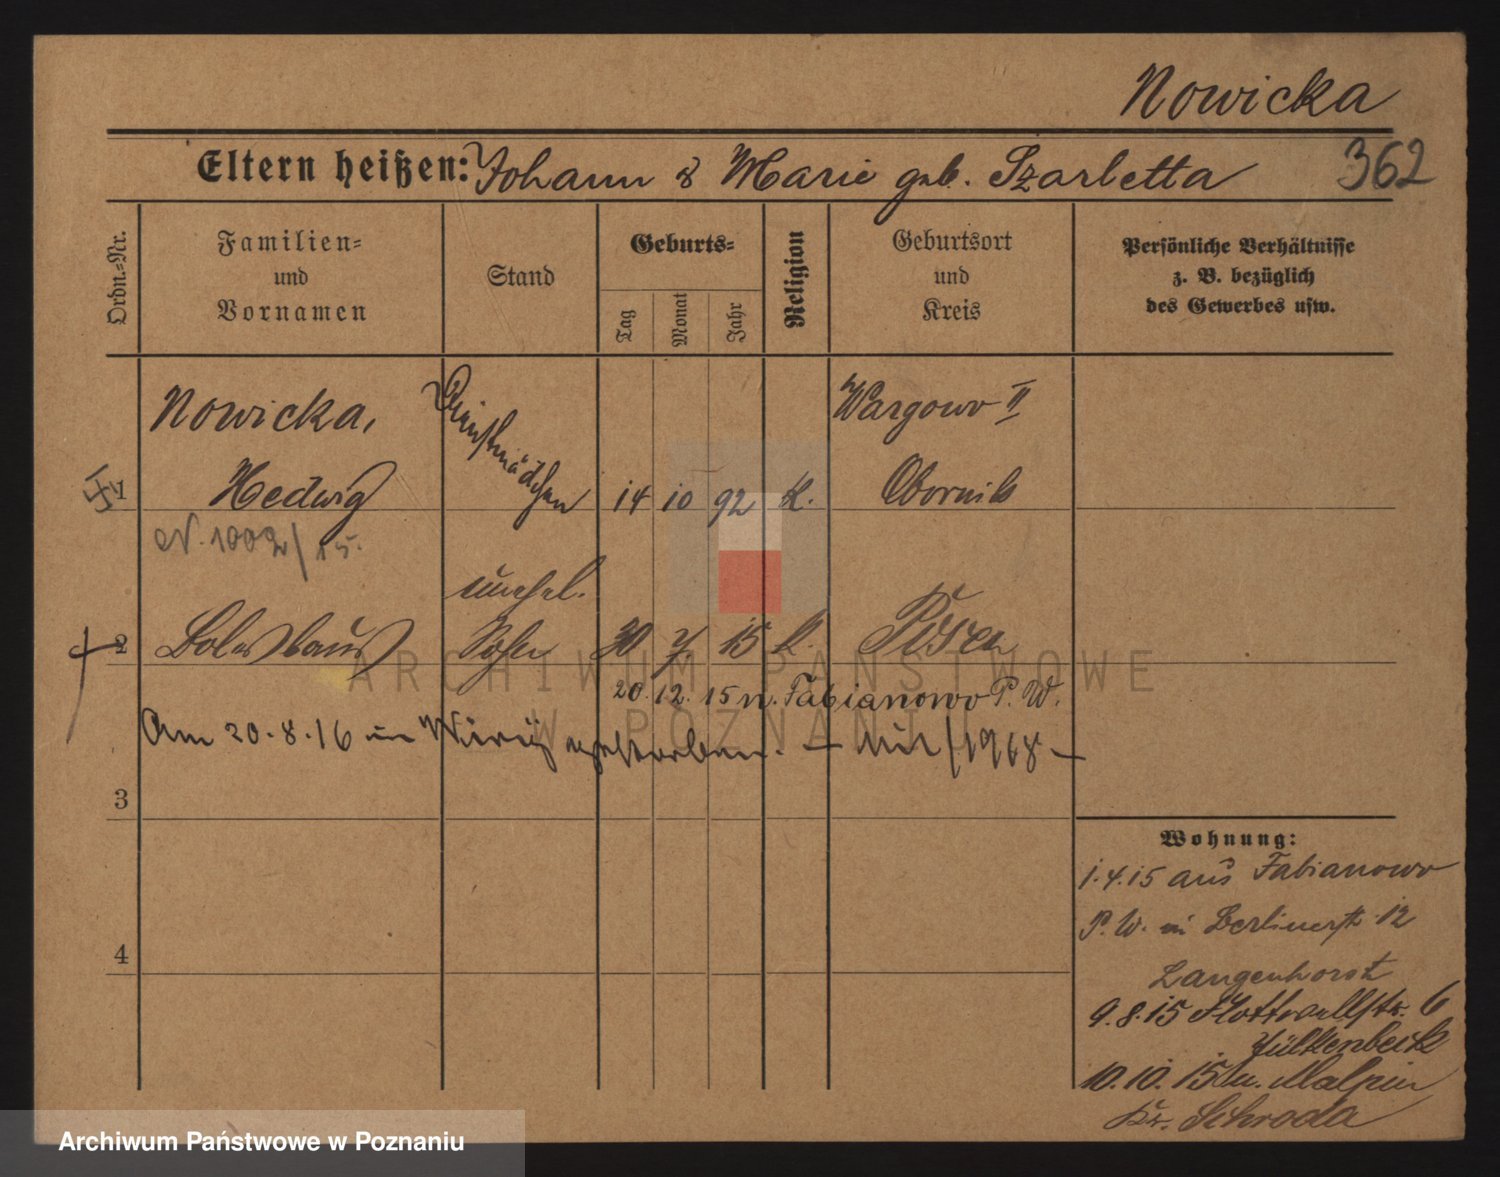 Nowicka
Eltern heißen: Johann & Marie geb. Szarletta 362
Ordn.-Nr.
Familien- und Vornamen
Stand
Geburts-
Tag Monat Jahr
Religion
Geburtsort und Kreis
Persönliche Verhältnisse
z. B. bezüglich
des Gewerbes usw.
Nowicka, Dienstmädchen Wargowo II
1 Hedwig 14 10 92 K. Obornik
N. 1002/15.
unehel.
2 Boleslaus Sohn 30 7. 15 k. Posen
20. 12. 15 n. Fabianowo P. W.
Am 20.8.16 in gestorben. —
3
4
Wohnung:
1.4.15 aus Fabianowo
P. W. in Berlinerstr 12
Langenhorst
9.8.15 Flottwellstr. 6
10.10.15 n. Malpin
Kr. Schroda
ARCHIWUM PAŃSTWOWE
W POZNANIU
Archiwum Państwowe w Poznaniu